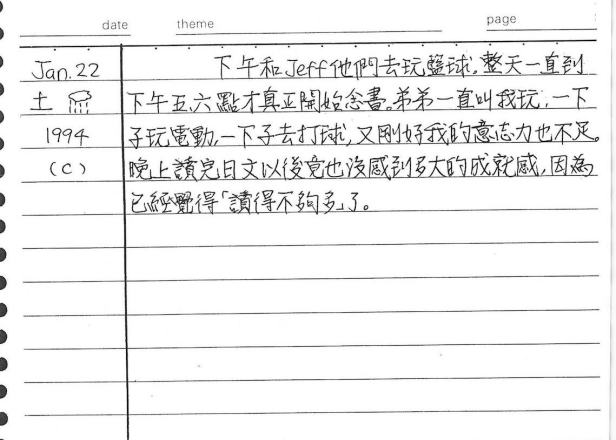 date theme page
Jan. 22 下午和Jeff他們去玩籃球,整天一直到
土 下午五六點才真正開始念書。弟弟一直叫我玩,一下
1994 子玩電動,一下子去打球,又剛好我的意志力也不足。
(C) 晚上讀完日文以後竟也沒感到多大的成就感,因為
已經覺得「讀得不夠多」了。